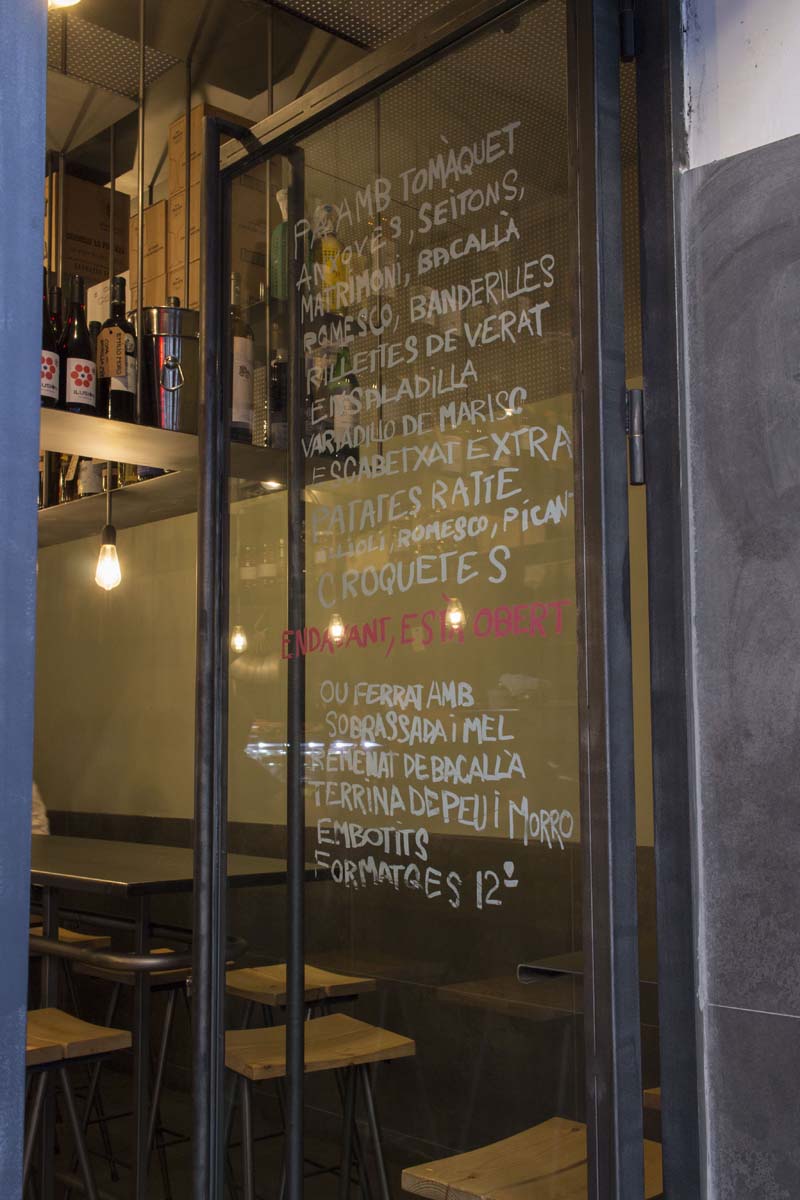 PA AMB TOMÀQUET
ANXOVES, SEITONS,
MATRIMONI, BACALLÀ
ROMESCO, BANDERILLES
RILLETTES DE VERAT
ENSALADILLA
VARIADILLO DE MARISC
ESCABETXAT EXTRA
PATATES RATTE
ALLIOLI, ROMESCO, PICANT
CROQUETES
ENDAVANT, ESTÀ OBERT
OU FERRAT AMB
SOBRASSADA I MEL
REMENAT DE BACALLÀ
TERRINA DE PEU I MORRO
EMBOTITS
FORMATGES 12